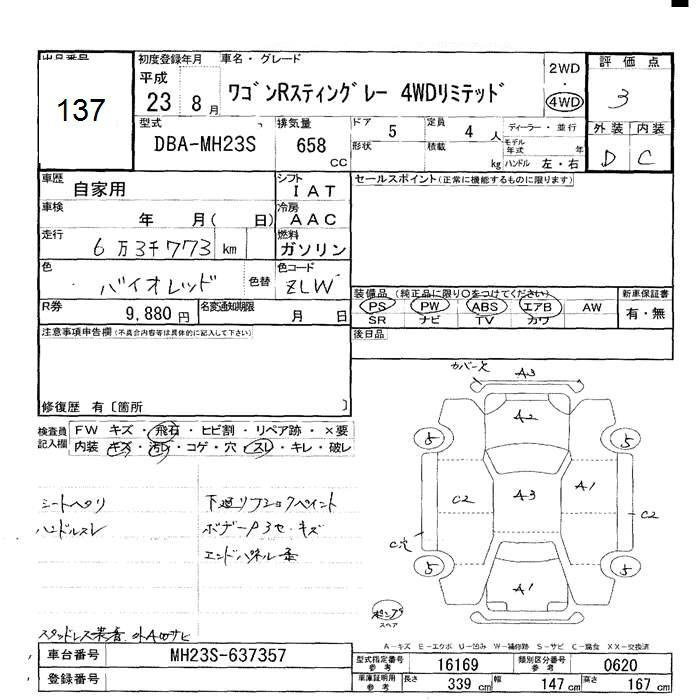 出品番号
137
初度登録年月
平成
23 8月
車名・グレード
ワゴンRスティングレー 4WDリミテッド
2WD
・
4WD
評価点
3
型式
DBA-MH23S
排気量
658
CC
ドア
5
形状
定員
4人
積載
kg
ディーラー・並行
モデル年式
年
ハンドル 左・右
外装 内装
D C
車歴
自家用
シフト
IAT
車検
年 月( 日)
冷房
AAC
走行
6万3千773 km
燃料
ガソリン
色
バイオレッド
色替
色コード
ZLW
R券
9,880円
名変通知期限
月 日
セールスポイント(正常に機能するものに限ります)
装備品 (純正品に限り○をつけてください)
PS PW ABS エアB AW
SR ナビ TV カワ
新車保証書
有・無
後日品
注意事項申告欄(不具合内容等は具体的に記入して下さい)
修復歴 有〔箇所 〕
検査員記入欄
FW キズ・飛石・ヒビ割・リペア跡・×要
内装 キズ・汚レ・コゲ・穴・スレ・キレ・破レ
シートヘタリ
ハンドルスレ
エンドパネル
カバー欠
A3
A2
5
5
C2
A3
A1
C2
C穴
5
5
A1
スペア
A-キズ E-エクボ U-凹み W-補修跡 S-サビ C-腐食 XX-交換済
車台番号
MH23S-637357
登録番号
型式指定番号
参考
16169
類別区分番号
参考
0620
車庫証明用
参考
長さ 339cm
幅 147cm
高さ 167cm